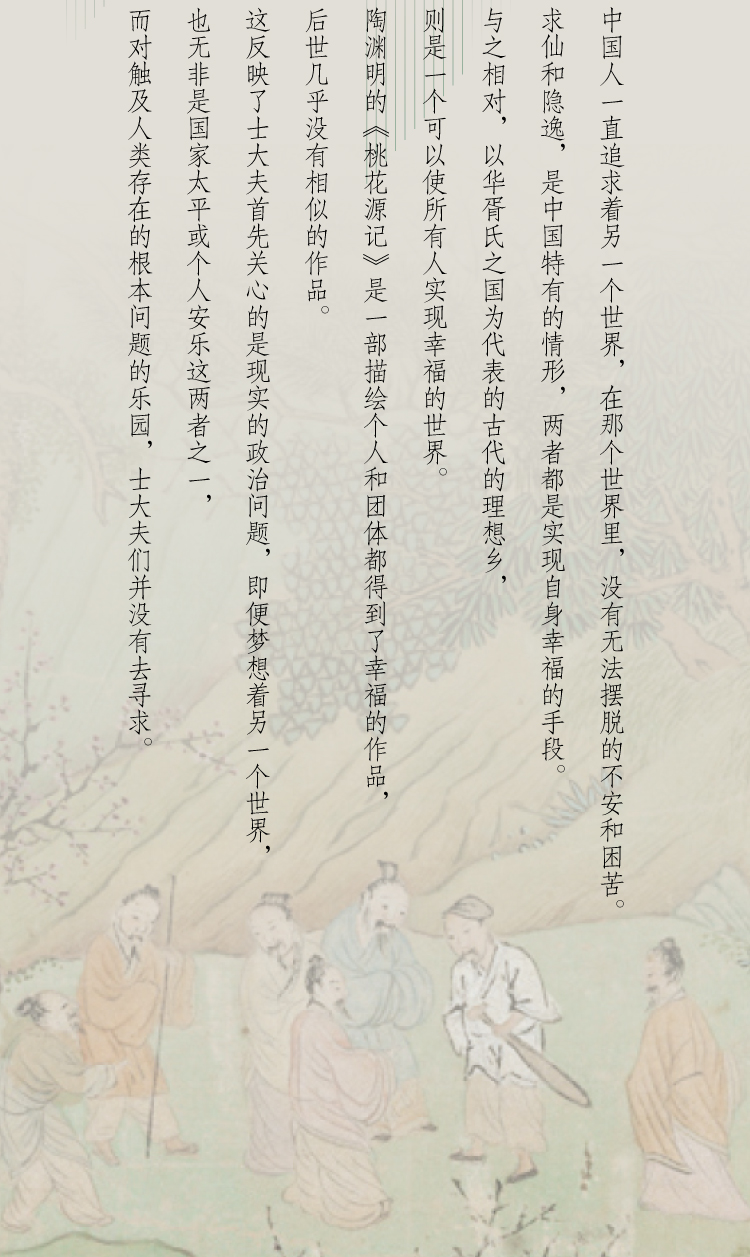 中国人一直追求着另一个世界，在那个世界里，没有无法摆脱的不安和困苦。
求仙和隐逸，是中国特有的情形，两者都是实现自身幸福的手段。
与之相对，以华胥氏之国为代表的古代的理想乡，
则是一个可以使所有人实现幸福的世界。
陶渊明的《桃花源记》是一部描绘个人和团体都得到了幸福的作品，
后世几乎没有相似的作品。
这反映了士大夫首先关心的是现实的政治问题，即便梦想着另一个世界，
也无非是国家太平或个人安乐这两者之一，
而对触及人类存在的根本问题的乐园，士大夫们并没有去寻求。